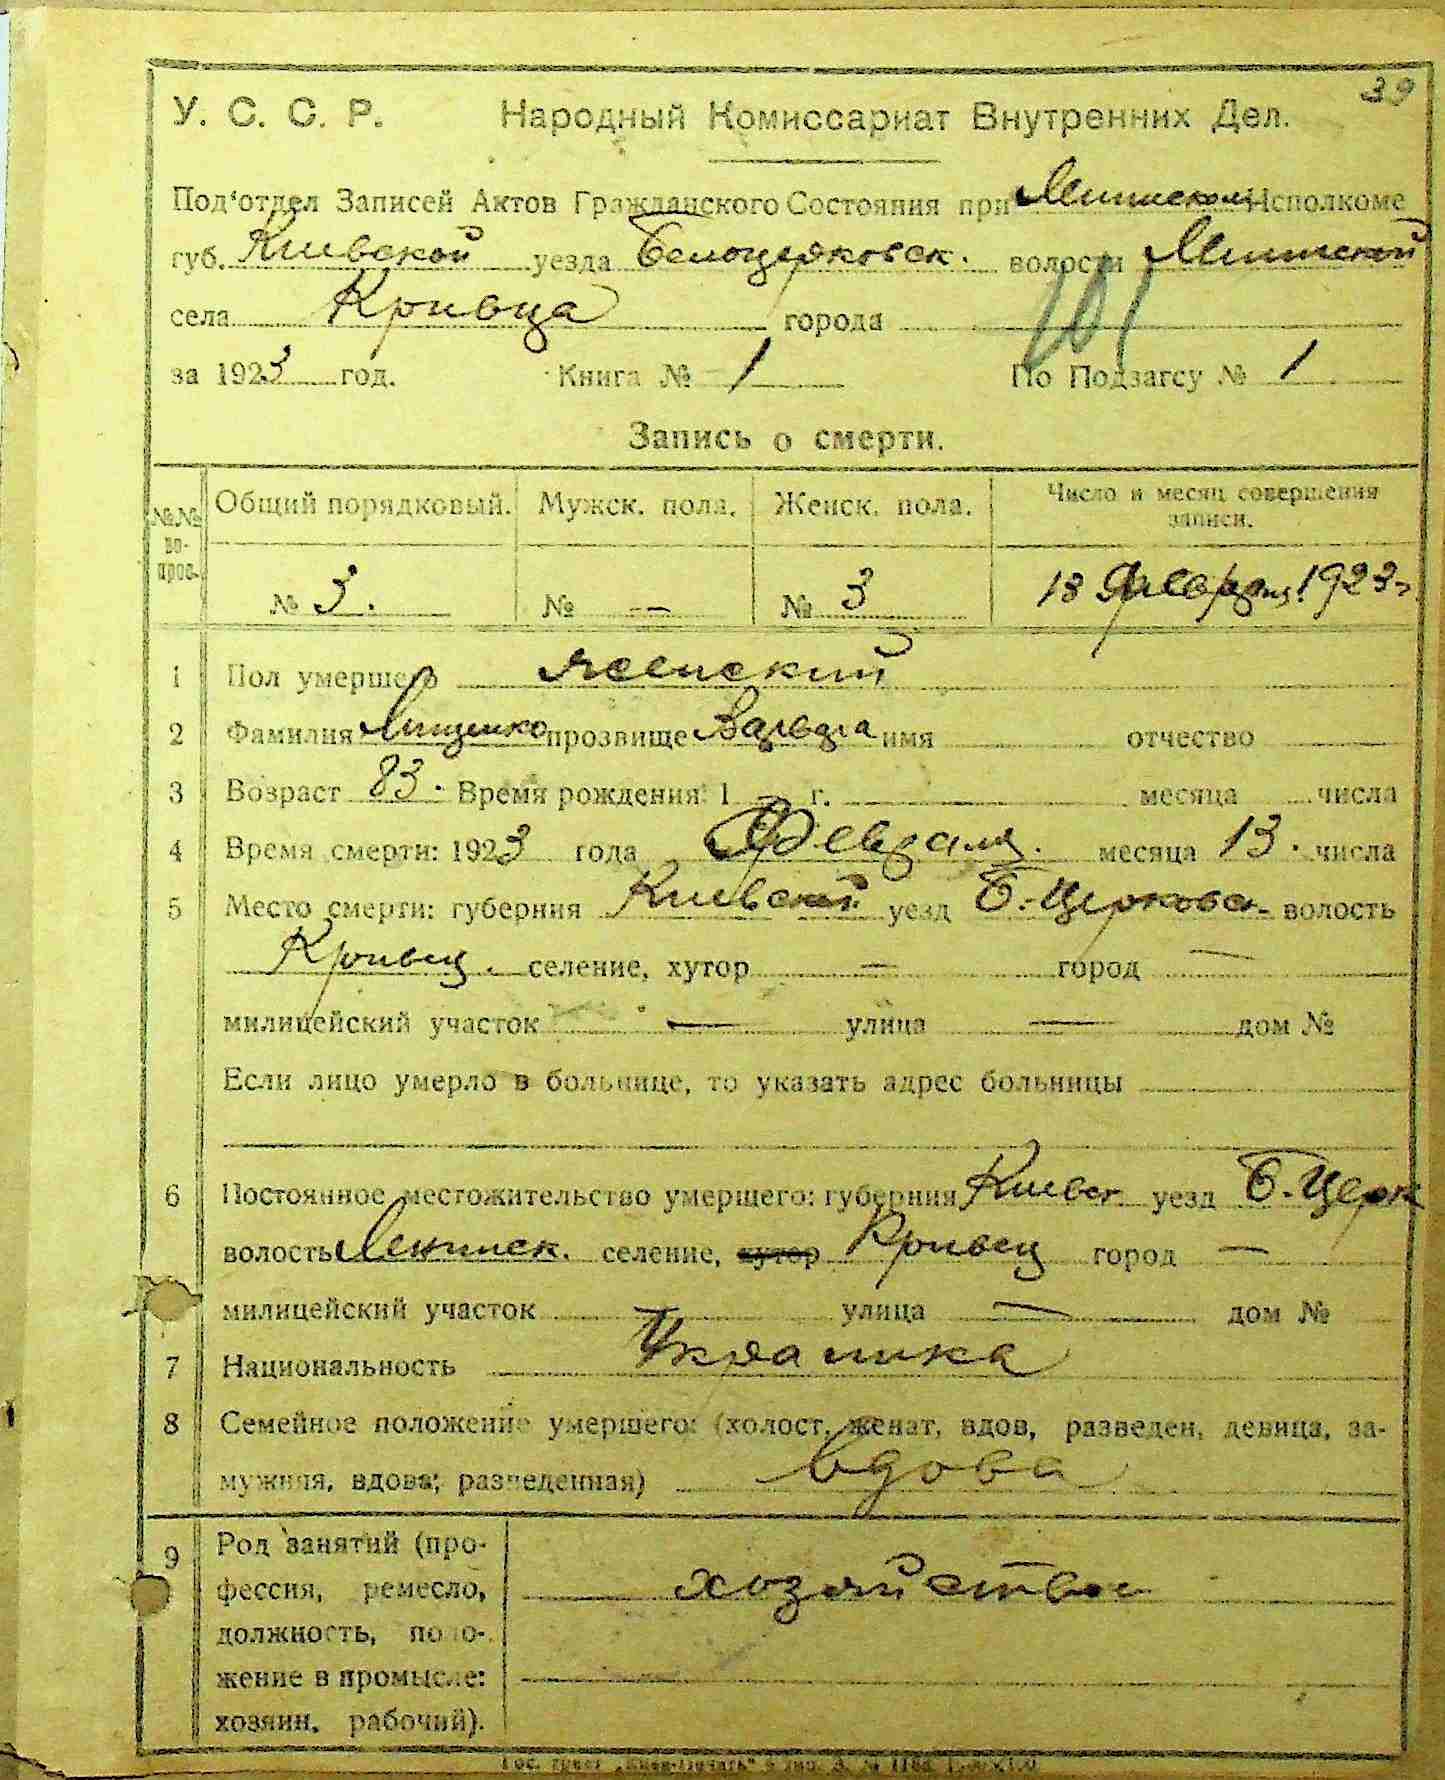 39
У. С. С. Р. Народный Комиссариат Внутренних Дел.
Под'отдел Записей Актов Гражданского Состояния при Исполкоме
губ. Киевской уезда Белоцерковск. волости
села Кривца города
101
за 1923 год. Книга № 1 По Подзагсу № 1
Запись о смерти.
№№ вопрос. Общий порядковый. Мужск. пола. Женск. пола. Число и месяц совершения записи.
№ 3. № — № 3 13 Февраля 1923 г.
1 Пол умершего женский
2 Фамилия Лищенко прозвище имя отчество
3 Возраст 83. Время рождения: 1 г. месяца числа
4 Время смерти: 1923 года Февраля. месяца 13. числа
5 Место смерти: губерния Киевской уезд Б.-Церковск. волость
Кривец. селение, хутор — город —
милицейский участок — улица — дом №
Если лицо умерло в больнице, то указать адрес больницы
6 Постоянное местожительство умершего: губерния Киевск. уезд Б.-Церк
волость селение, хутор Кривец город —
милицейский участок улица — дом №
7 Национальность Украинка
8 Семейное положение умершего: (холост, женат, вдов, разведен, девица, за-
мужняя, вдова, разведенная) вдова
9 Род занятий (про-
фессия, ремесло, хозяйство
должность, поло-
жение в промысле:
хозяин, рабочий).